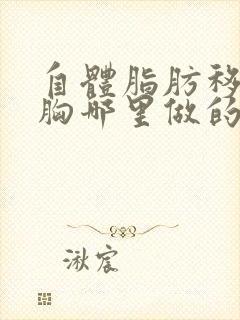 自體脂肪移
胸哪里做的
湫宸